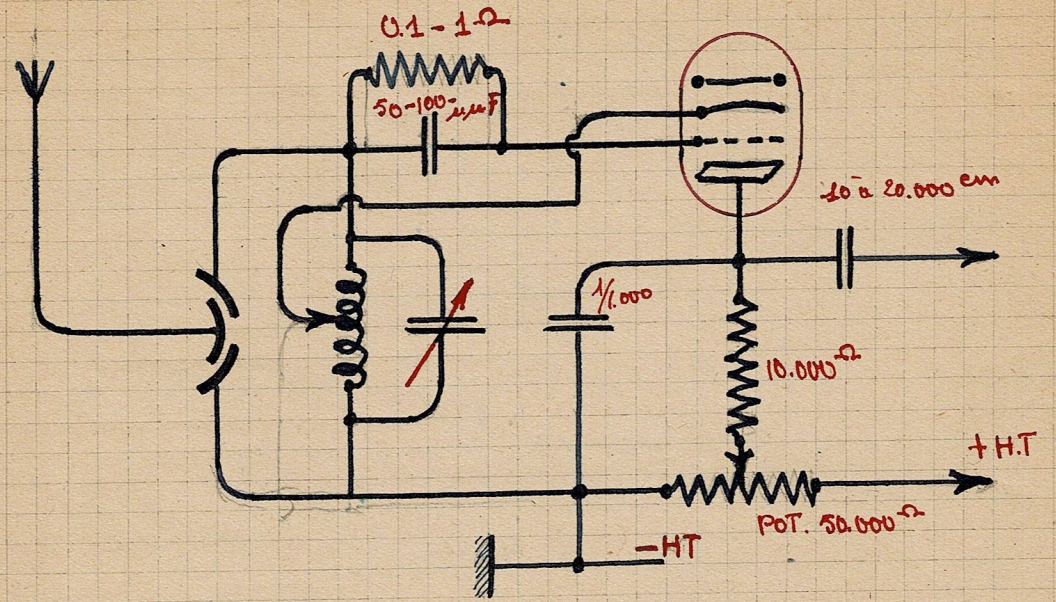 0.1 - 1 Ω
50-100-μμF
10 à 20.000 cm
1/1.000
10.000 Ω
+ H.T
POT. 50.000 Ω
-HT